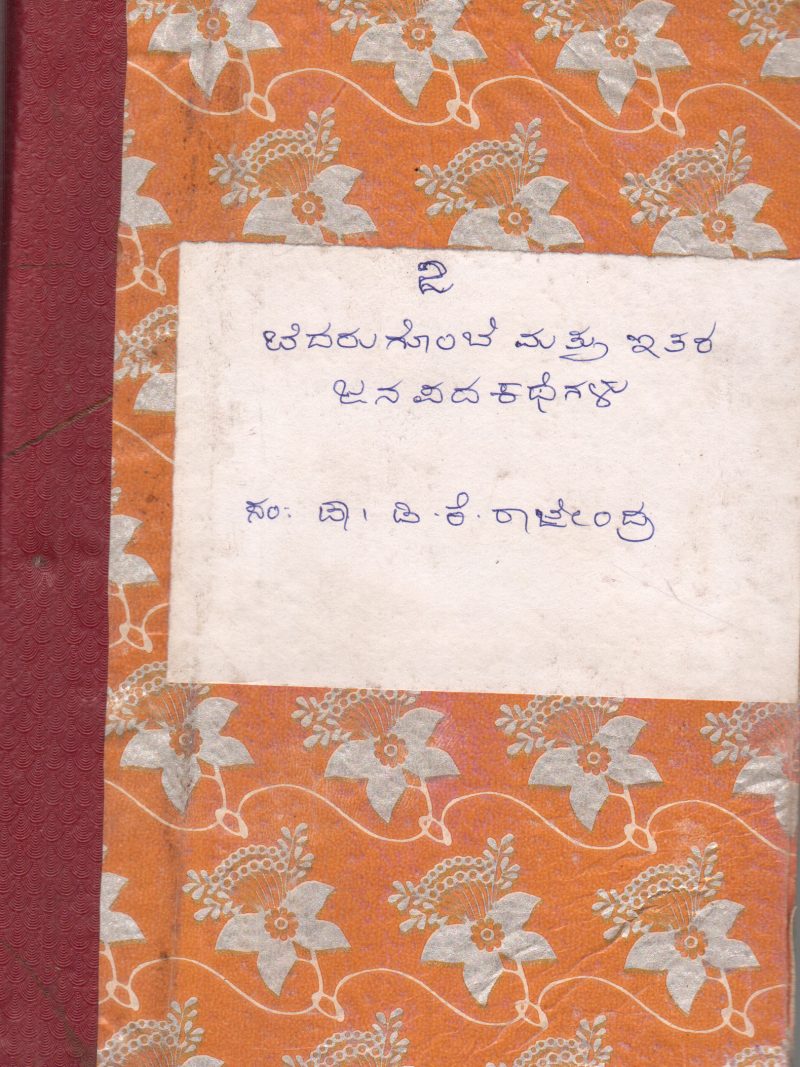 ೨
ಬೆದರುಗೊಂಬೆ ಮತ್ತು ಇತರ
ಜನಪದ ಕಥೆಗಳು
ಸಂ: ಡಾ। ಡಿ.ಕೆ.ರಾಜೇಂದ್ರ